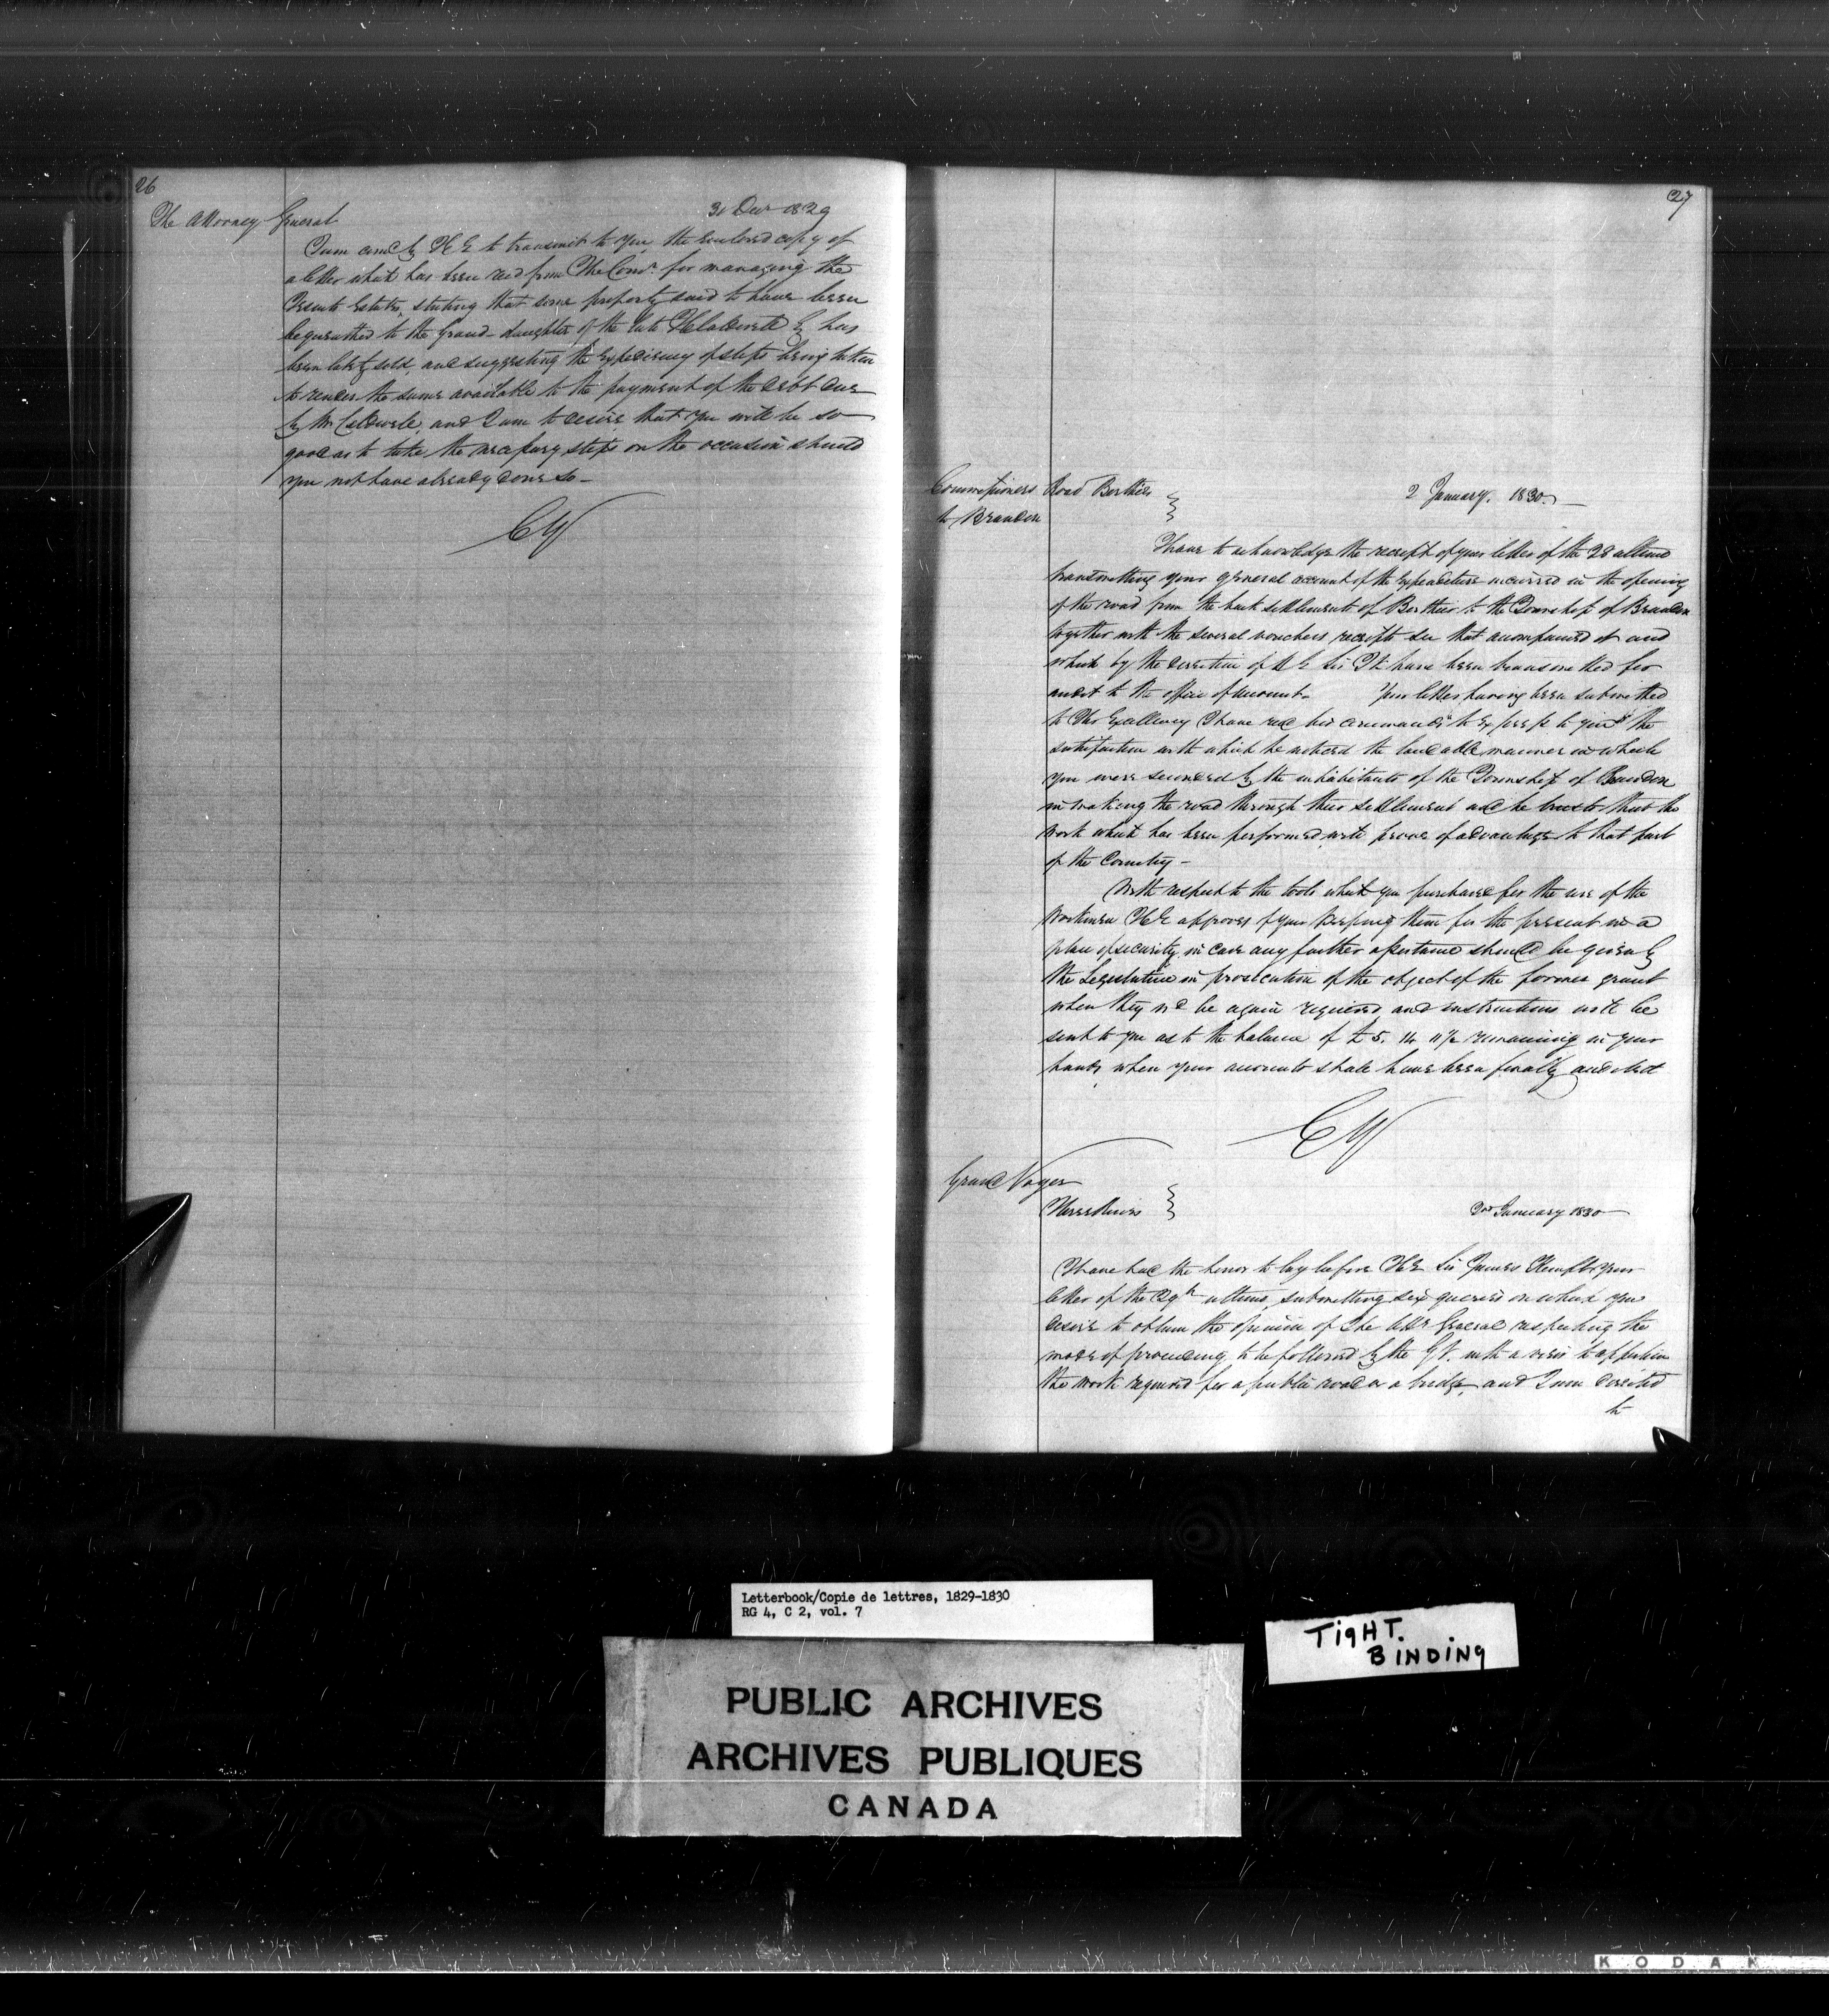 26
The Attorney General
31 Decr 1829
I am comd by H E to transmit to you, the enclosed copy of
a letter which has been recd from The Comrs for managing the
Jesuits Estates, stating that some property said to have been
bequeathed to the Grand-daughter of the late H Caldwell Eq has
been lately sold, and suggesting the expediency of steps being taken
to render the same available to the payment of the debt due
by Mr Caldwell, and I am to desire that you will be so
good as to take the necessary steps on the occasion should
you not have already done so -
CY
27
Commissioners Road Berthier
to Brandon
2 January. 1830.
I have to acknowledge the receipt of your letter of the 28 ultimo
transmitting your general account of the expenditure incurred in the opening
of the road from the back settlements of Berthier to the Township of Brandon
together with the several vouchers receipts &c that accompanied it and
which by the direction of H E Sir J K have been transmitted for
audit to the office of account. Your letter having been submitted
to His Excellency I have recd his commands to express to you the
satisfaction with which he noticed the laudable manner in which
you were seconded by the inhabitants of the Township of Brandon
in making the road through their settlement and he trusts that the
work which has been performed will prove of advantage to that part
of the Country -
With respect to the tools which you purchased for the use of the
workmen H E approves of your keeping them for the present in a
place of security in case any further assistance should be given by
the Legislature in prosecution of the object of the former grant
when they wd be again required, and instructions will be
sent to you as to the balance of £5. 14 11½ remaining in your
hands, when your accounts shall have been finally audited
CY
Grand Voyer
Three Rivers
2nd January 1830
I have had the honor to lay before H E Sir James Kempt your
letter of the 29th ultimo, submitting six queries on which you
desire to obtain the opinion of The Atty General respecting the
mode of proceeding to be followed by the G V. with a view to apportion
the work required for a public road or a bridge, and I am directed
to
Letterbook/Copie de lettres, 1829-1830
RG 4, C 2, vol. 7
TIGHT.
BINDING
PUBLIC ARCHIVES
ARCHIVES PUBLIQUES
CANADA
KODAK